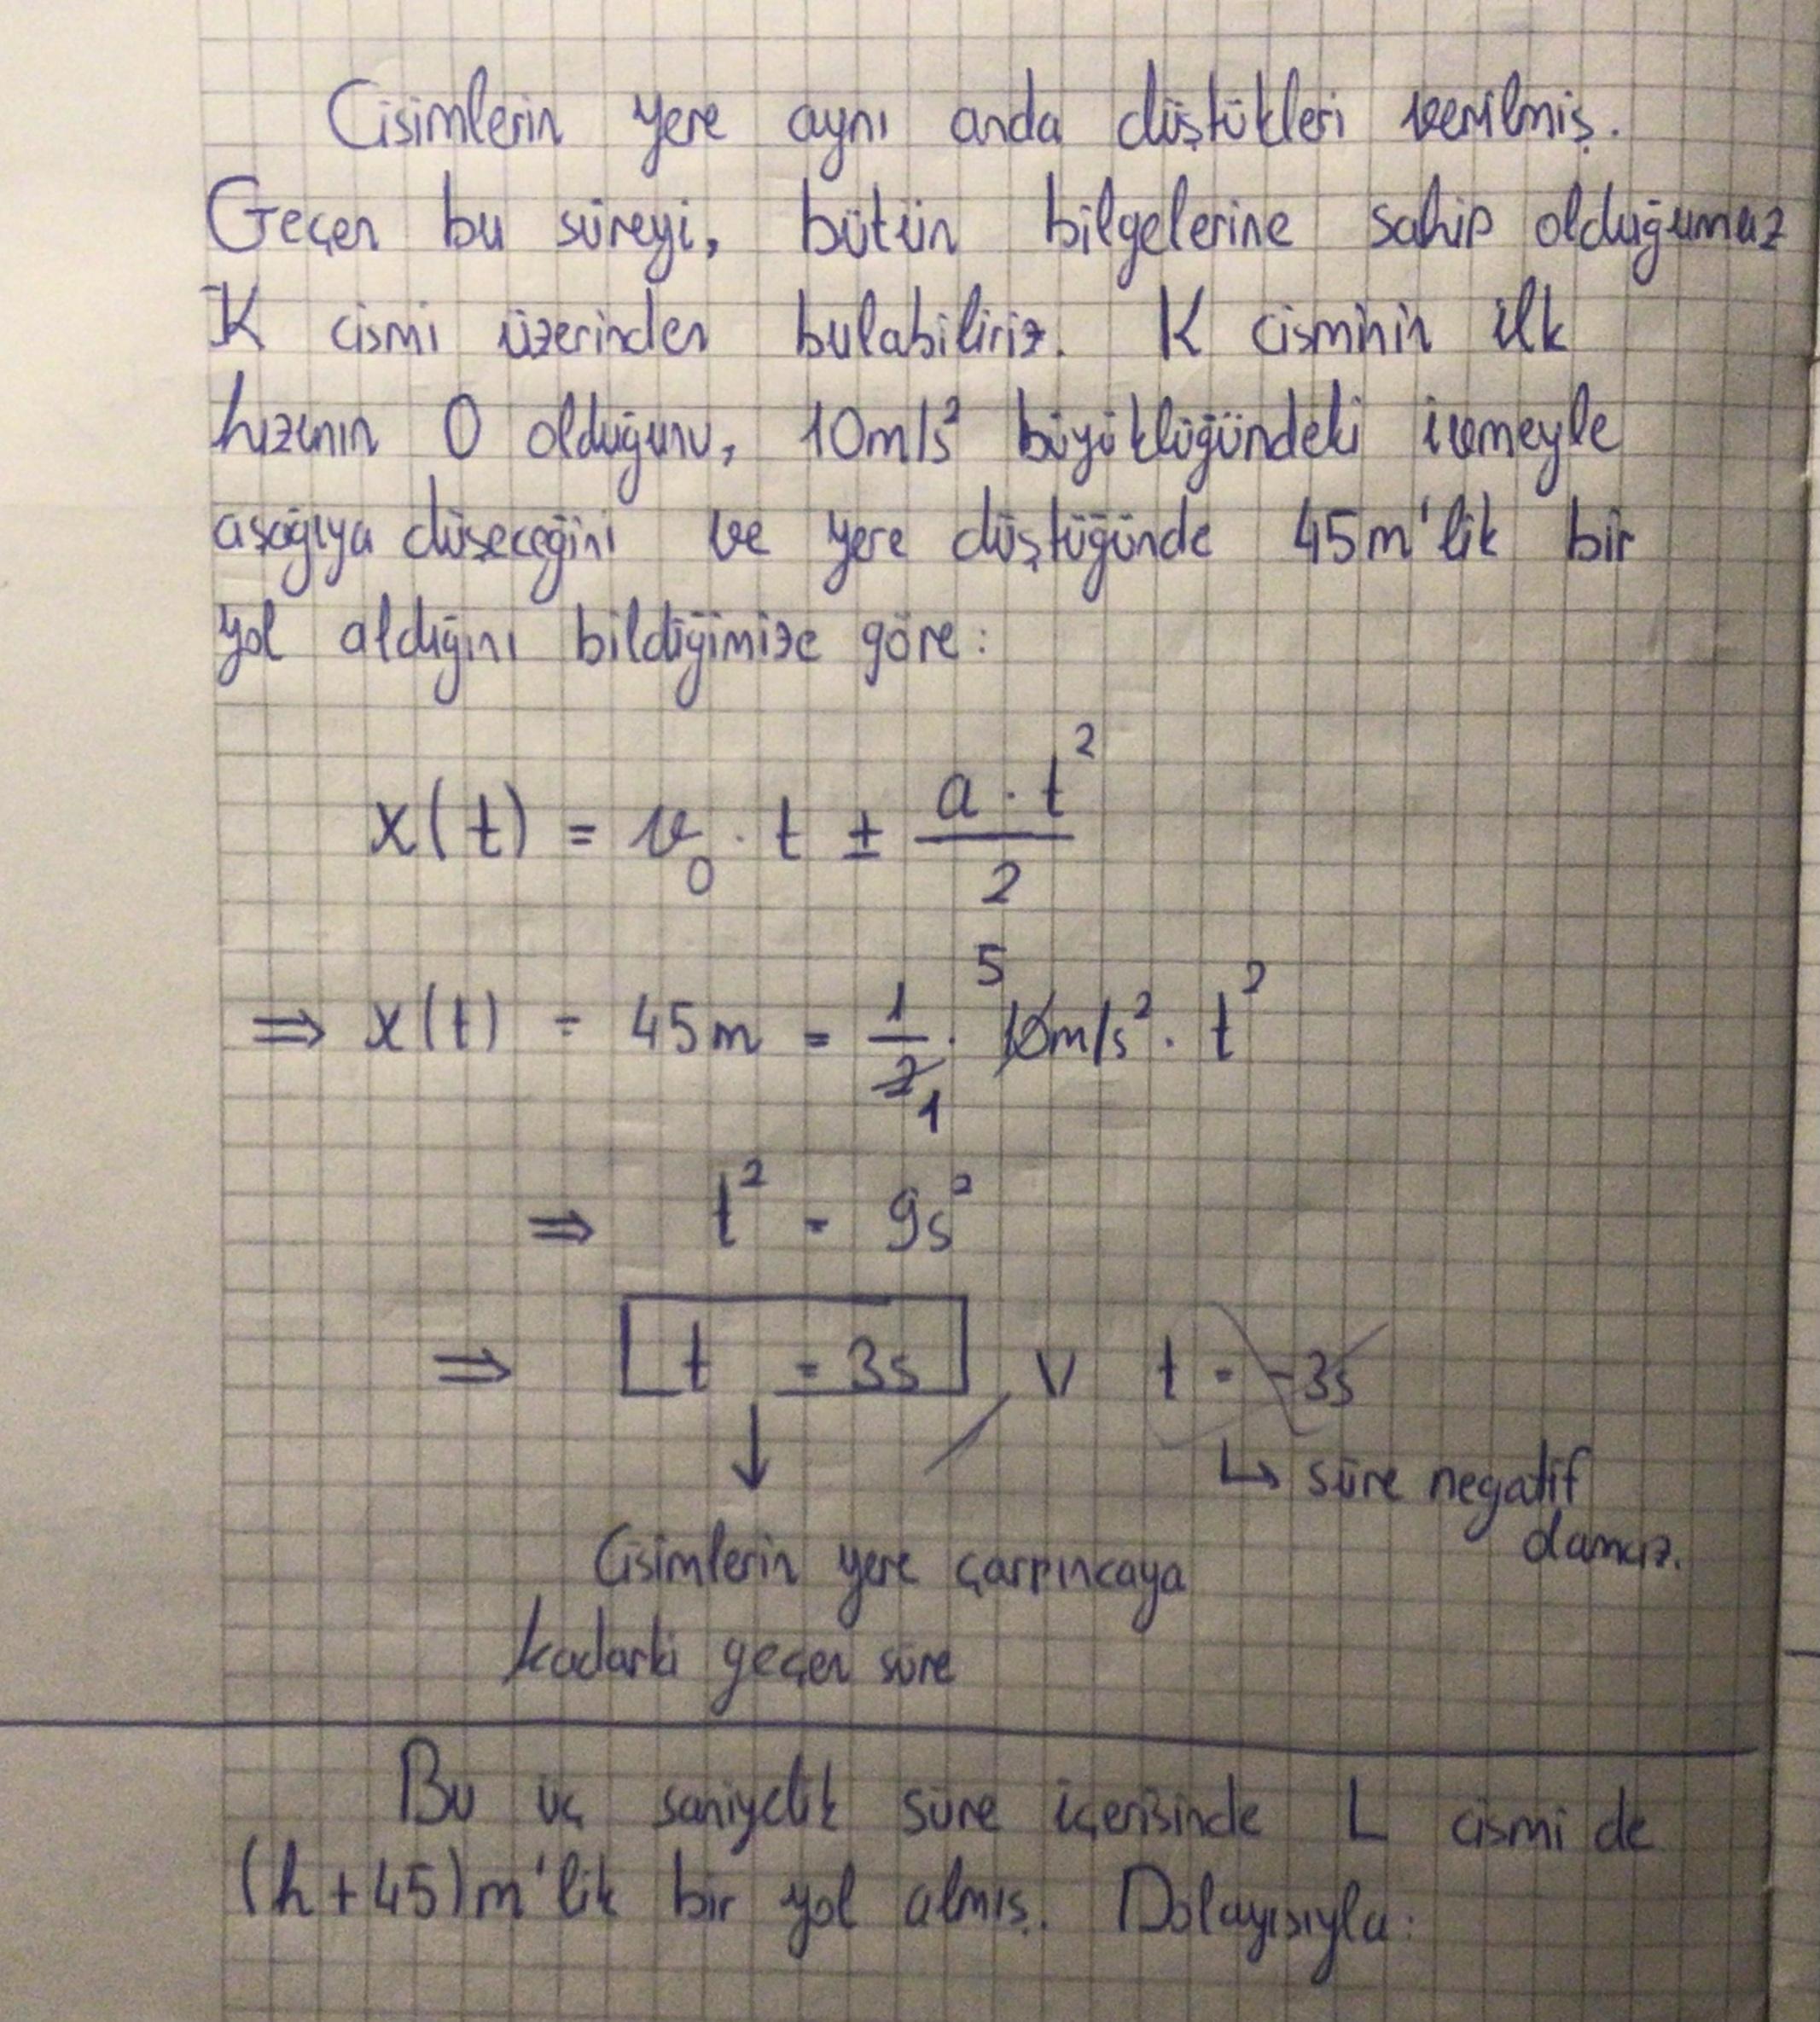 Cisimlerin yere aynı anda düştükleri verilmiş.
Geçen bu süreyi, bütün bilgelerine sahip olduğumuz
K cismi üzerinden bulabiliriz. K cisminin ilk
hızının 0 olduğunu, 10m/s² büyüklüğündeki ivmeyle
aşağıya düşeceğini ve yere düştüğünde 45m'lik bir
yol aldığını bildiğimize göre:
x(t) = v₀ · t ± a · t² / 2
⇒ x(t) = 45m = 1/2 1 · 5 10m/s² · t²
⇒ t² = 9s²
⇒ t = 3s ∨ t = -3s
↳ süre negatif
olamaz.
Cisimlerin yere çarpıncaya
kadarki geçen süre
Bu üç saniyelik süre içerisinde L cismi de
(h+45)m'lik bir yol almış. Dolayısıyla: